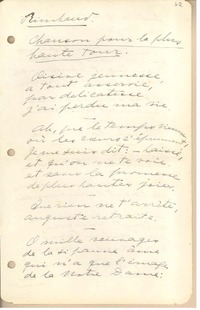 Rimbaud.
Chanson de la plus
haute tour.
Oisive jeunesse
à tout asservie,
par délicatesse
j'ai perdu ma vie.
Ah, que le temps vienne
où les cœurs s'éprennent,
Je me suis dit: laisse,
et qu'on ne te voie,
et sans la promesse
de plus hautes joies.
Que rien ne t'arrête,
auguste retraite.
O mille veuvages
de la si pauvre âme
qui n'a que l'image
de la Notre Dame: